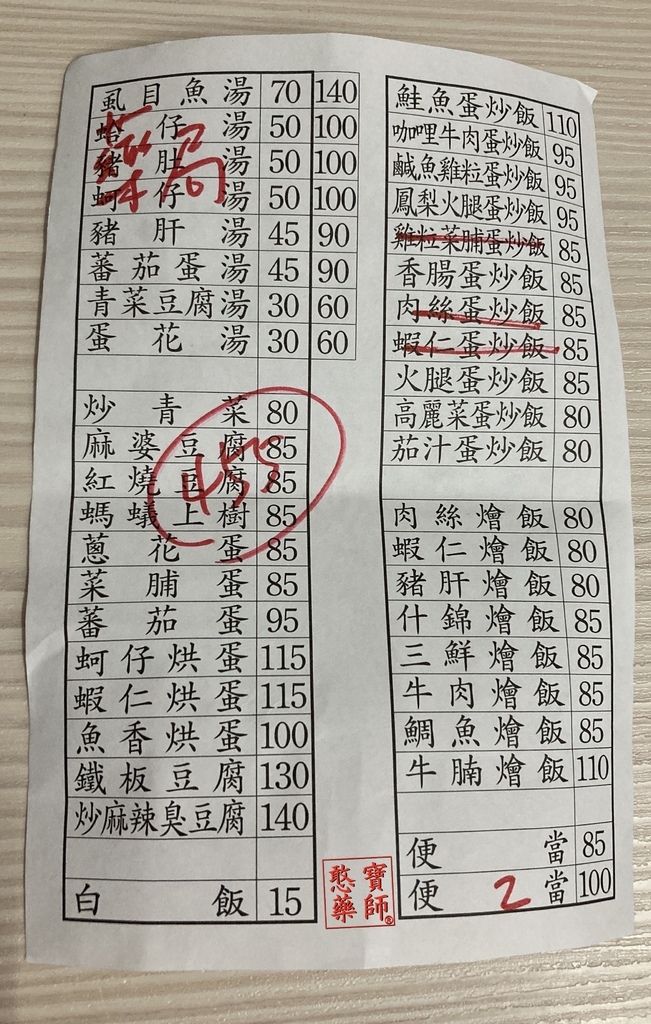 虱目魚湯 70 140
蛤仔湯 50 100
豬肚湯 50 100
蚵仔湯 50 100
豬肝湯 45 90
蕃茄蛋湯 45 90
青菜豆腐湯 30 60
蛋花湯 30 60
藥局
炒青菜 80
麻婆豆腐 85
紅燒豆腐 85
螞蟻上樹 85
蔥花蛋 85
菜脯蛋 85
蕃茄蛋 95
蚵仔烘蛋 115
蝦仁烘蛋 115
魚香烘蛋 100
鐵板豆腐 130
炒麻辣臭豆腐 140
455
白飯 15
鮭魚蛋炒飯 110
咖哩牛肉蛋炒飯 95
鹹魚雞粒蛋炒飯 95
鳳梨火腿蛋炒飯 95
雞粒菜脯蛋炒飯 85
香腸蛋炒飯 85
肉絲蛋炒飯 85
蝦仁蛋炒飯 85
火腿蛋炒飯 85
高麗菜蛋炒飯 80
茄汁蛋炒飯 80
肉絲燴飯 80
蝦仁燴飯 80
豬肝燴飯 80
什錦燴飯 85
三鮮燴飯 85
牛肉燴飯 85
鯛魚燴飯 85
牛腩燴飯 110
便當 85
便 2 當 100
憨寶
藥師®